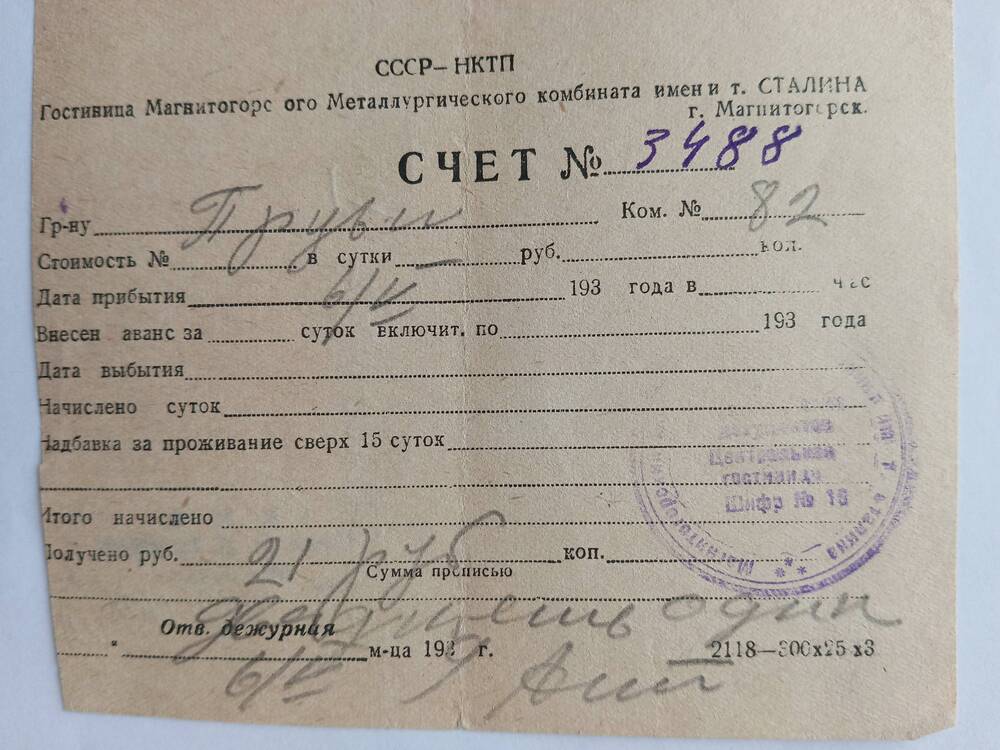 СССР–НКТП
Гостиница Магнитогорс ого Металлургического комбината имени т. СТАЛИНА
г. Магнитогорск.
СЧЕТ № 3488
Гр-ну Ком. № 82
Стоимость № в сутки — руб. коп.
Дата прибытия 6/V 193 года в час
Внесен аванс за суток включит. по 193 года
Дата выбытия
Начислено суток
Надбавка за проживание сверх 15 суток
Итого начислено
Получено руб. 21 руб коп.
Сумма прописью
двадцать один
Отв. дежурная
" 6/V м-ца 193 г.
2118—300х25х3
документов
Центральная
гостиница
Шифр № 16
Магнитогорский
Сталина